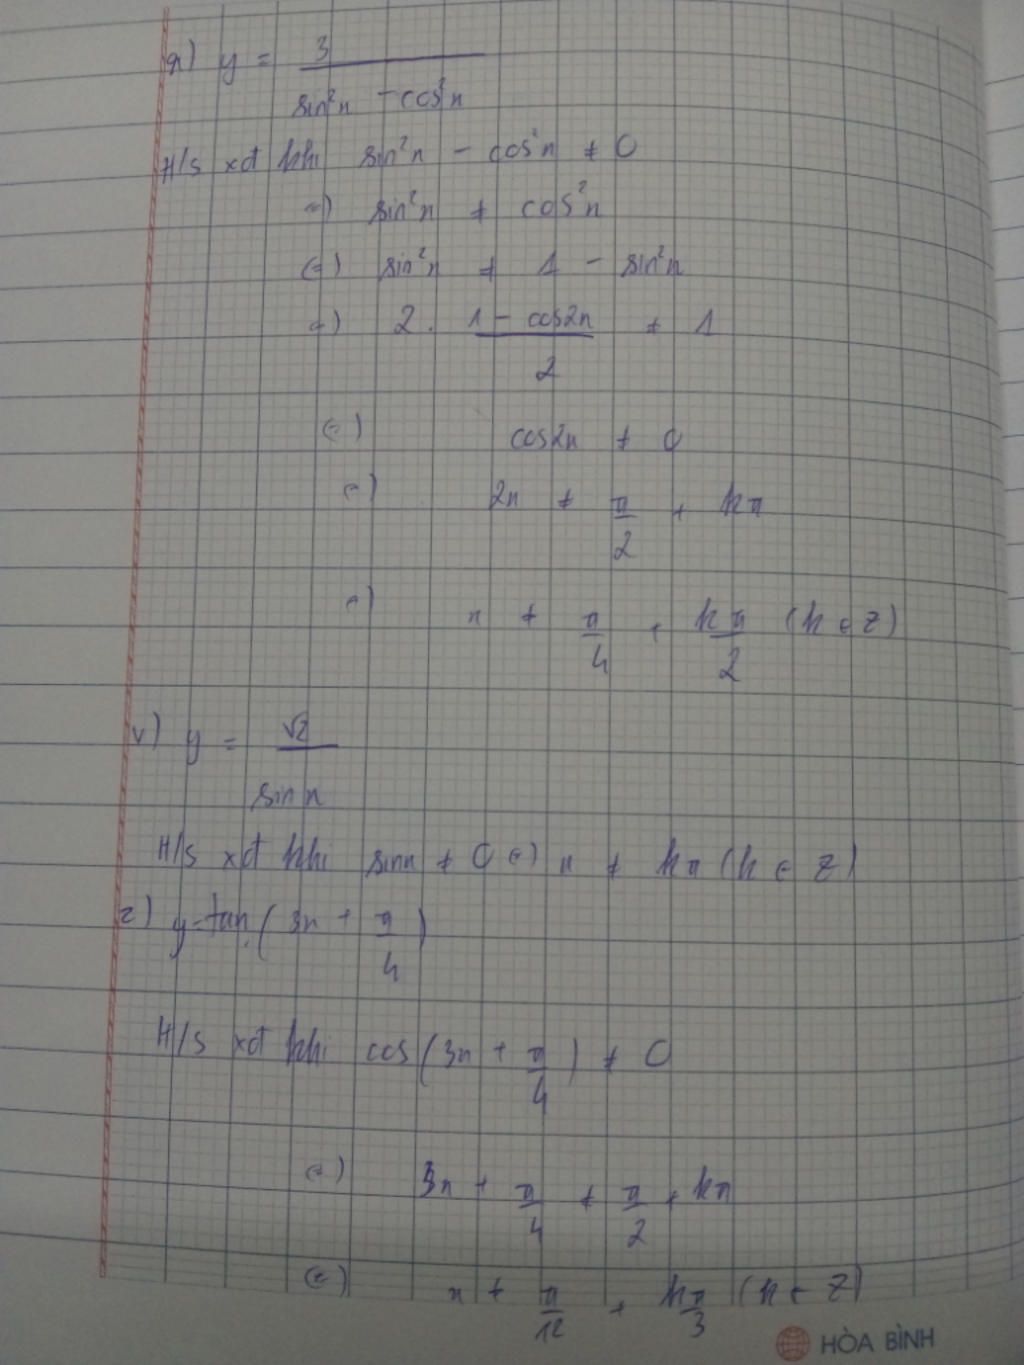 x) y = 3 / (sin²x - cos²x)
H/s xđ khi sin²x - cos²x ≠ 0
(=) sin²x ≠ cos²x
(=) sin²x ≠ 1 - sin²x
(=) 2. (1 - cos2x) / 2 ≠ 1
(=) cos2x ≠ 0
(=) 2x ≠ π/2 + kπ
(=) x ≠ π/4 + kπ/2 (k ∈ Z)
v) y = √2 / sin x
H/s xđ khi sinx ≠ 0 (=) x ≠ kπ (k ∈ Z)
z) y = tan (3x + π/4)
H/s xđ khi cos (3x + π/4) ≠ 0
(=) 3x + π/4 ≠ π/2 + kπ
(=) x ≠ π/12 + kπ/3 (k ∈ Z)
HÒA BÌNH